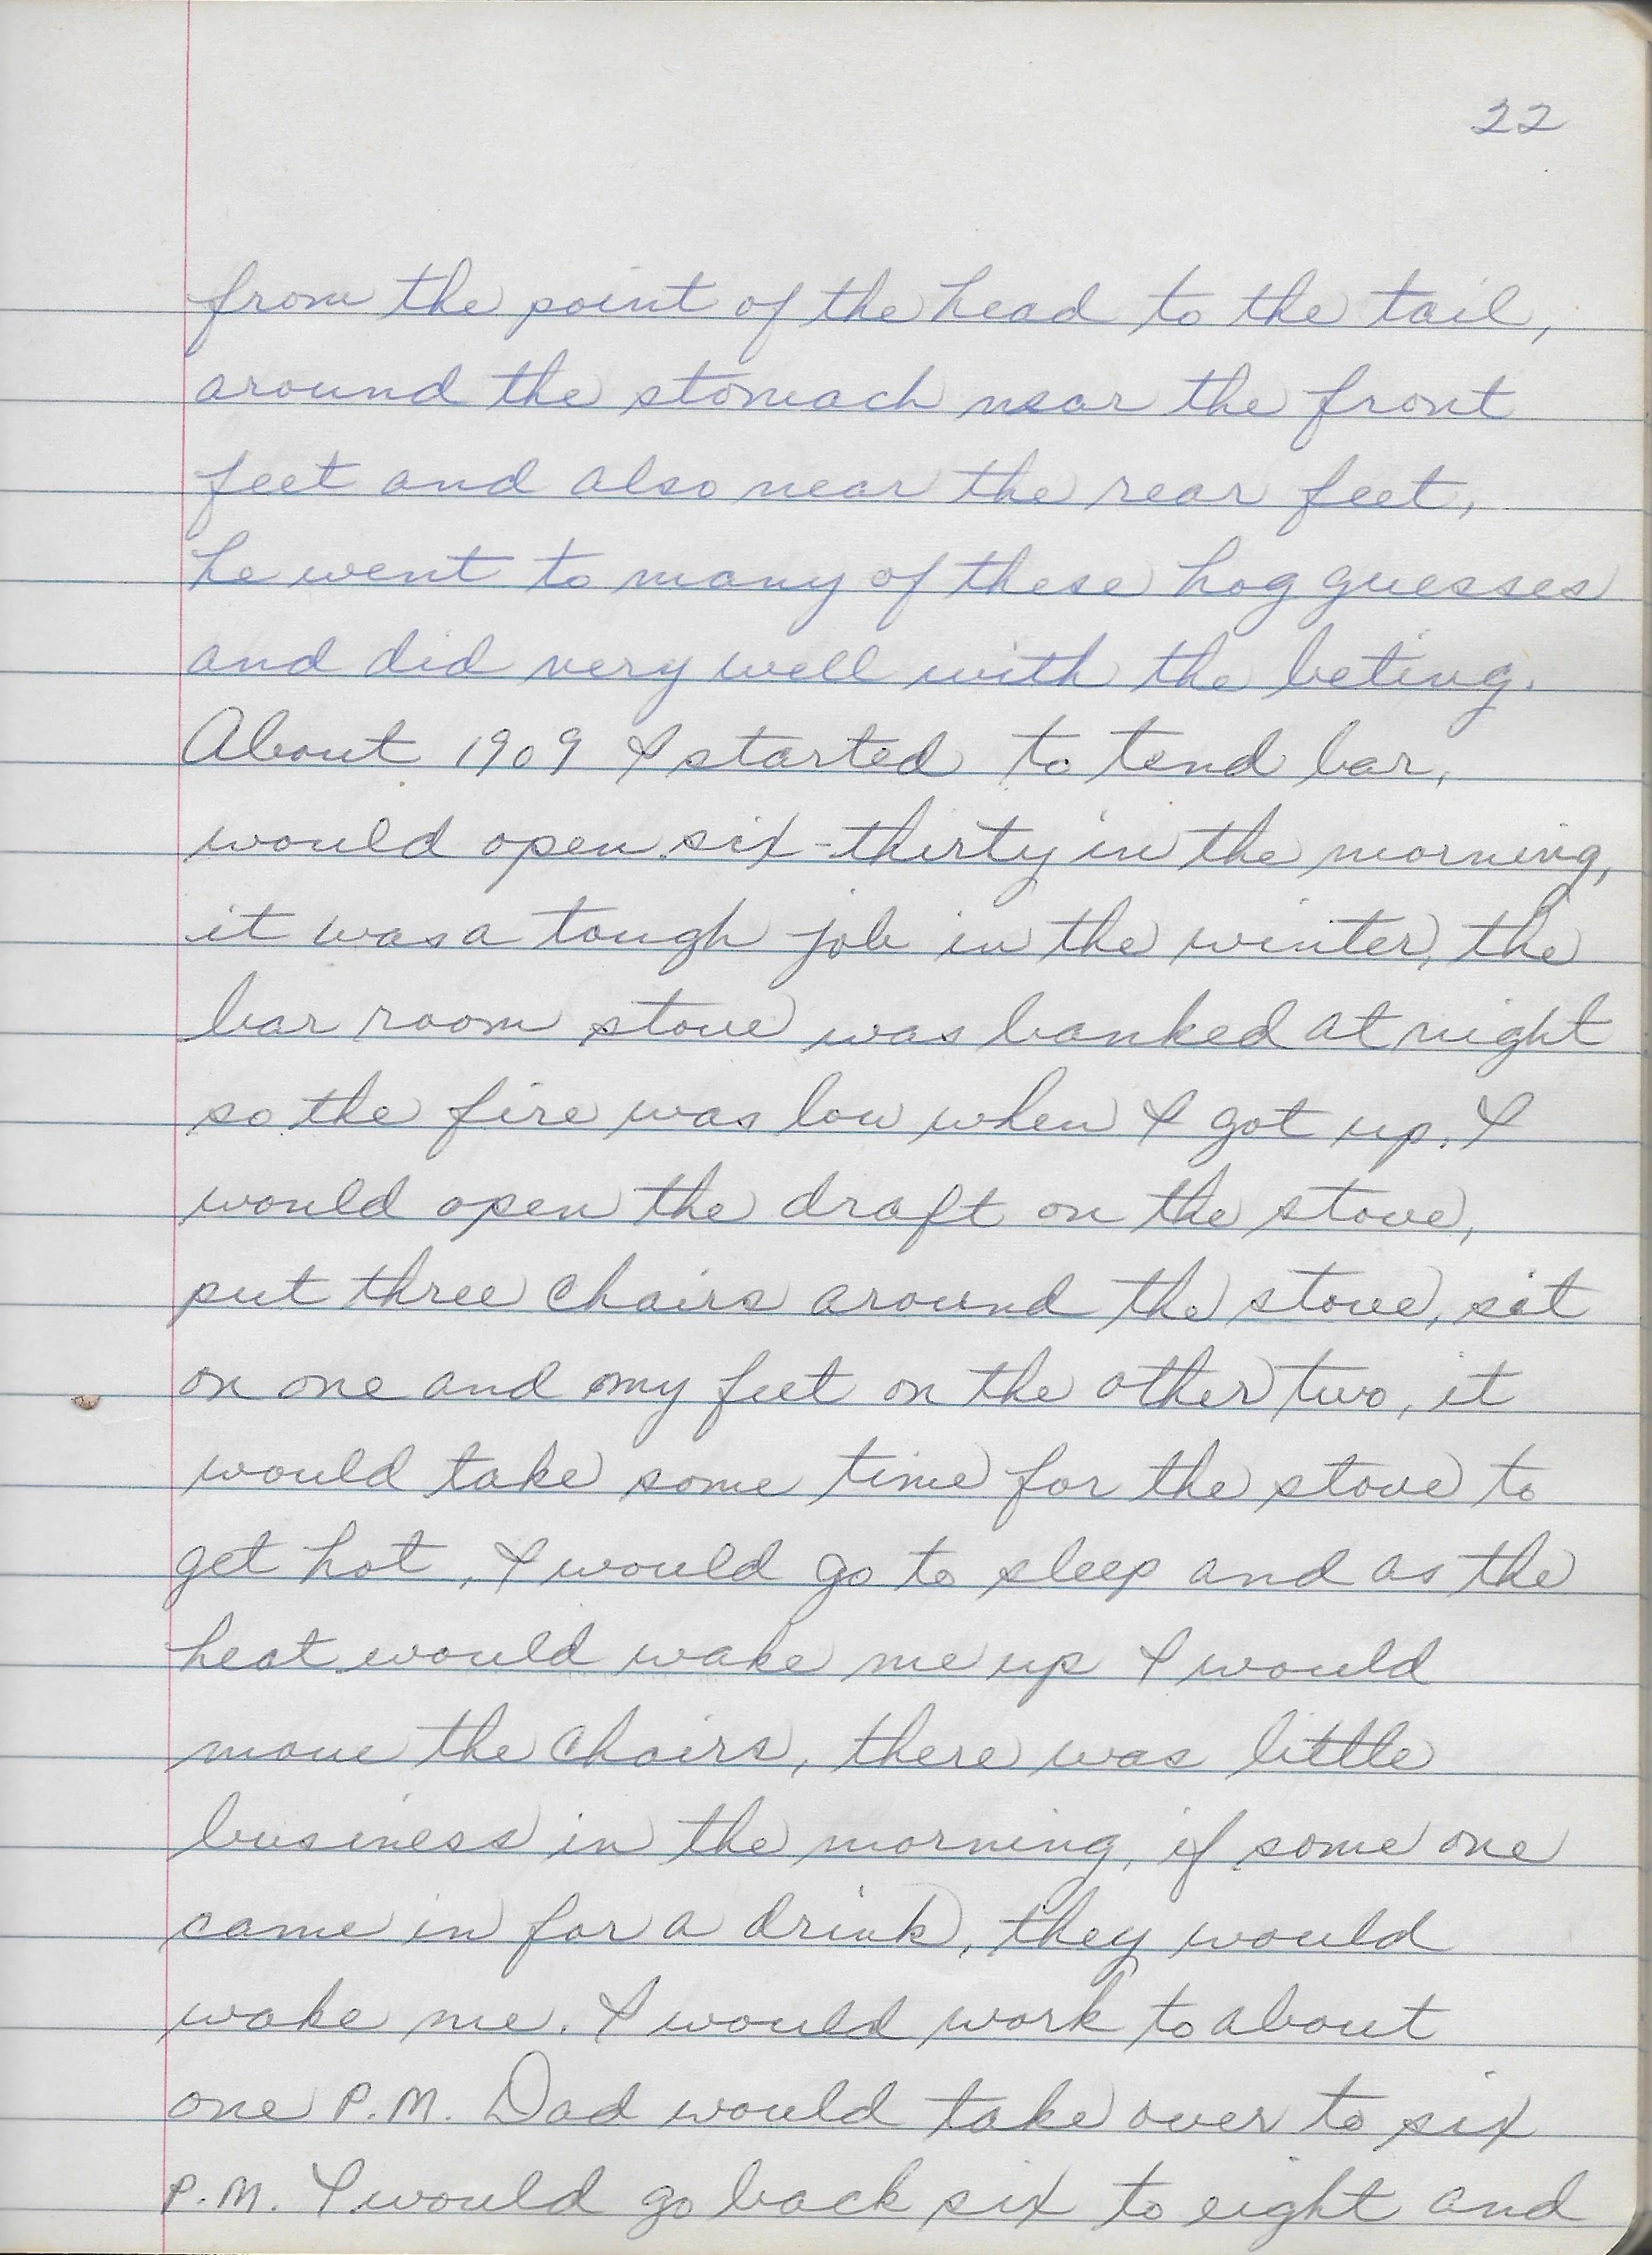 22
from the point of the head to the tail,
around the stomach near the front
feet and also near the rear feet,
he went to many of these hog guesses
and did very well with the beting.
About 1909 I started to tend bar,
would open six-thirty in the morning,
it was a tough job in the winter, the
bar room stove was banked at night
so the fire was low when I got up. I
would open the draft on the stove,
put three chairs around the stove, sit
on one and my feet on the other two, it
would take some time for the stove to
get hot, I would go to sleep and as the
heat would wake me up I would
move the chairs, there was little
business in the morning, if some one
came in for a drink, they would
wake me. I would work to about
one P.M. Dad would take over to six
P.M. I would go back six to eight and